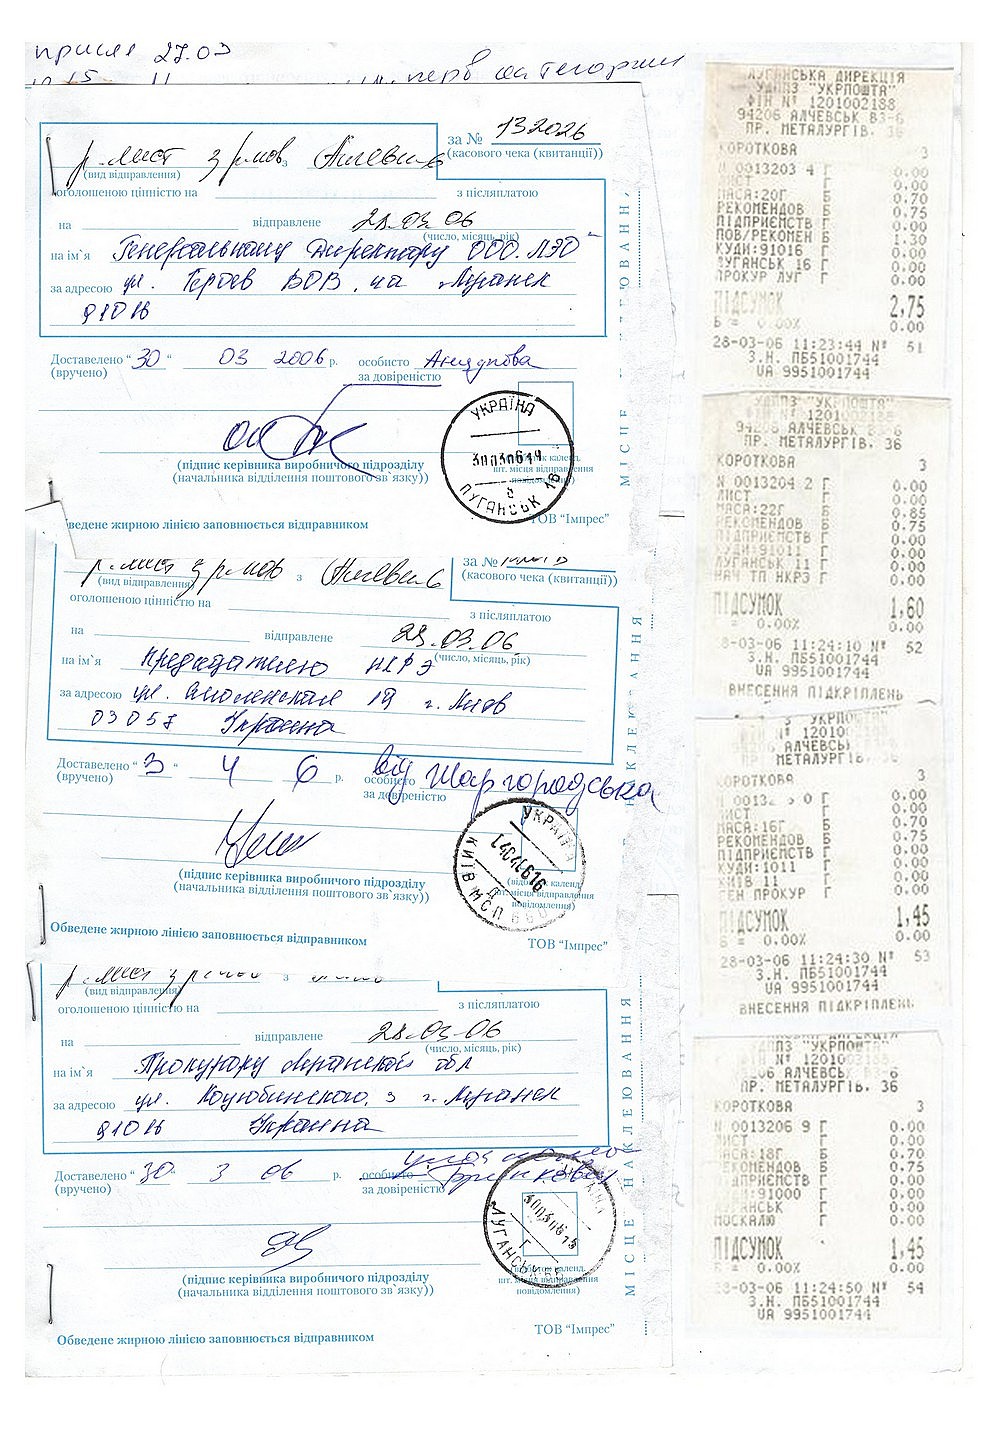 после 27.03
р. лист з рмов з Алчевск-6
(вид відправлення)
за № 132026
(касового чека (квитанції))
оголошеною цінністю на з післяплатою
на відправлене 28.03.06
(число, місяць, рік)
на ім`я Генеральному Директору ООО "ЛЭО"
за адресою ул. Героев ВОВ, г. Луганск
91016
Доставлено "30" 03 2006 р. особисто
(вручено) за довіреністю
(підпис керівника виробничого підрозділу
(начальника відділення поштового зв`язку))
УКРАЇНА
ЛУГАНСЬК 16
Обведене жирною лінією заповнюється відправником
ТОВ "Імпрес"
МІСЦЕ НАКЛЕЮВАННЯ
р. лист з рмов з Алчевск-6
(вид відправлення)
за №
(касового чека (квитанції))
оголошеною цінністю на з післяплатою
на відправлене 28.03.06
(число, місяць, рік)
на ім`я Председателю НКРЭ
за адресою ул. Смоленская 19 г. Киев
03057 Украина
Доставлено "3" 4 6 р. особисто від Шаргородська
(вручено) за довіреністю
(підпис керівника виробничого підрозділу
(начальника відділення поштового зв`язку))
УКРАЇНА
КИЇВ МСП
Обведене жирною лінією заповнюється відправником
ТОВ "Імпрес"
р. лист з
(вид відправлення)
оголошеною цінністю на з післяплатою
на відправлене 28.03.06
(число, місяць, рік)
на ім`я Прокурору Луганской обл
за адресою ул. Коцюбинского, 3 г. Луганск
91016 Украина
Доставлено "30" 3 06 р. особисто
(вручено) за довіреністю
(підпис керівника виробничого підрозділу
(начальника відділення поштового зв`язку))
ЛУГАНСЬК
Обведене жирною лінією заповнюється відправником
ТОВ "Імпрес"
МІСЦЕ НАКЛЕЮВАННЯ
ЛУГАНСЬКА ДИРЕКЦІЯ
УДППЗ "УКРПОШТА"
ФІН N° 1201002188
94206 АЛЧЕВСЬК ВЗ-6
ПР. МЕТАЛУРГІВ, 36
КОРОТКОВА 3
N 0013203 4 Г 0.00
ЛИСТ Г 0.00
МАСА:20Г Б 0.70
РЕКОМЕНДОВ Б 0.75
ПІДПРИЄМСТВ Г 0.00
ПОВ/РЕКОМЕН Б 1.30
КУДИ:91016 Г 0.00
ЛУГАНСЬК 16 Г 0.00
ПРОКУР ЛУГ Г 0.00
ПІДСУМОК 2,75
Б = 0.00% 0.00
28-03-06 11:23:44 N° 51
З.Н. ПБ51001744
UA 9951001744
УДППЗ "УКРПОШТА"
ФІН N° 1201002188
94206 АЛЧЕВСЬК ВЗ-6
ПР. МЕТАЛУРГІВ, 36
КОРОТКОВА 3
N 0013204 2 Г 0.00
ЛИСТ Г 0.00
МАСА:22Г Б 0.85
РЕКОМЕНДОВ Б 0.75
ПІДПРИЄМСТВ Г 0.00
КУДИ:91011 Г 0.00
ЛУГАНСЬК 11 Г 0.00
НАЧ ТП НКРЭ Г 0.00
ПІДСУМОК 1,60
0.00
28-03-06 11:24:10 N° 52
З.Н. ПБ51001744
UA 9951001744
ВНЕСЕННЯ ПІДКРІПЛЕНЬ
УКРПОШТА"
АЛЧЕВСЬ
МЕТАЛУРГІВ, 36
КОРОТКОВА 3
Г 0.00
ЛИСТ Г 0.00
МАСА:16Г Б 0.70
РЕКОМЕНДОВ Б 0.75
ПІДПРИЄМСТВ Г 0.00
КУДИ:1011 Г 0.00
КИЇВ 11 Г 0.00
ГЕН ПРОКУР Г 0.00
ПІДСУМОК 1,45
Б = 0.00% 0.00
28-03-06 11:24:30 N° 53
З.Н. ПБ51001744
UA 9951001744
ВНЕСЕННЯ ПІДКРІПЛЕНЬ
"УКРПОШТА"
АЛЧЕВСЬК
ПР. МЕТАЛУРГІВ, 36
КОРОТКОВА 3
N 0013206 9 Г 0.00
ЛИСТ Г 0.00
МАСА:18Г Б 0.70
РЕКОМЕНДОВ Б 0.75
ПІДПРИЄМСТВ Г 0.00
КУДИ:91000 Г 0.00
ЛУГАНСЬК Г 0.00
МОСКАЛЮ Г 0.00
ПІДСУМОК 1,45
Б = 0.00% 0.00
28-03-06 11:24:50 N° 54
З.Н. ПБ51001744
UA 9951001744